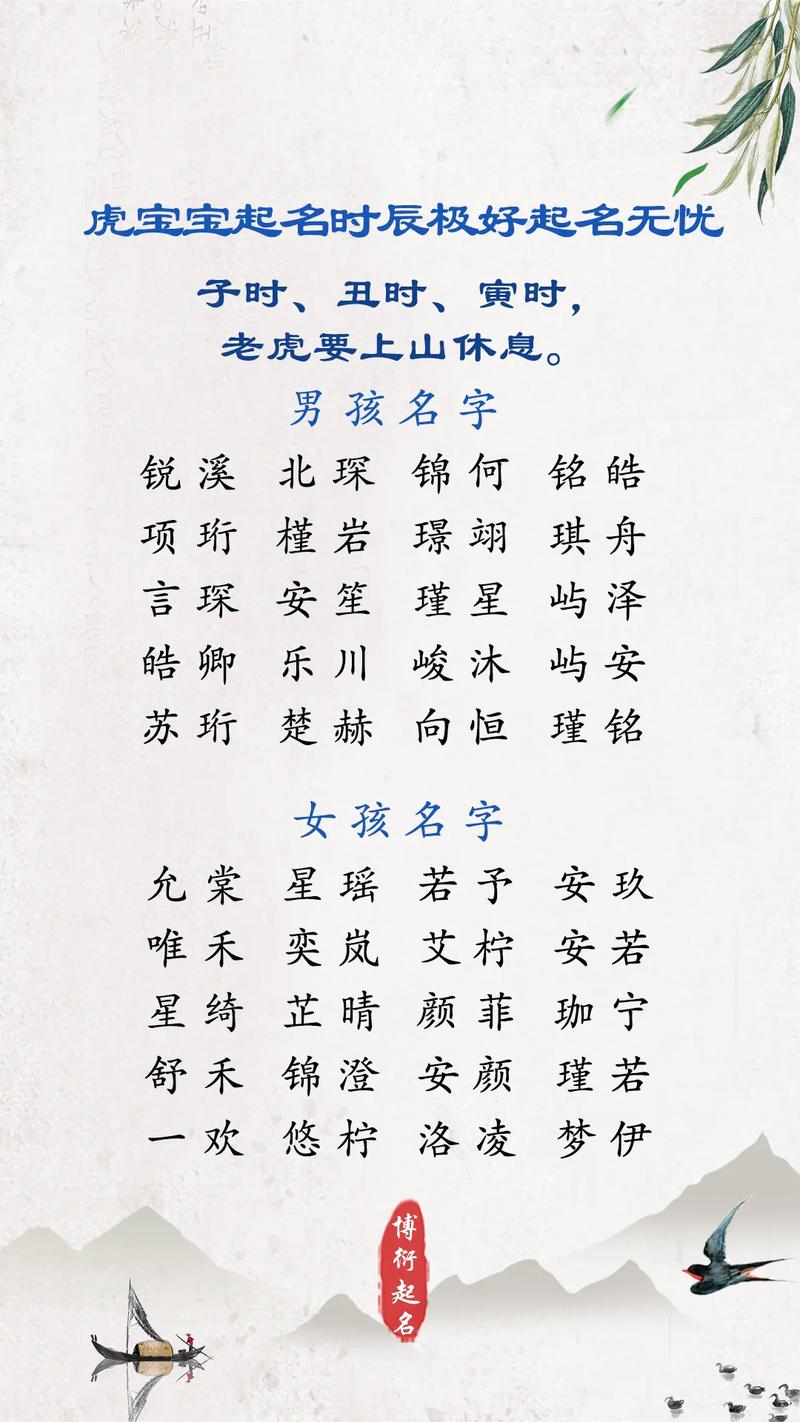 虎宝宝起名时辰极好起名无忧
子时、丑时、寅时，
老虎要上山休息。
男孩名字
锐溪 北琛 锦何 铭皓
项珩 槿岩 璟翊 琪舟
言琛 安笙 瑾星 屿泽
皓卿 乐川 峻沐 屿安
苏珩 楚赫 向恒 瑾铭
女孩名字
允棠 星瑶 若予 安玖
唯禾 奕岚 艾柠 安若
星绮 芷晴 颜菲 珈宁
舒禾 锦澄 安颜 瑾若
一欢 悠柠 洛凌 梦伊
博衍起名